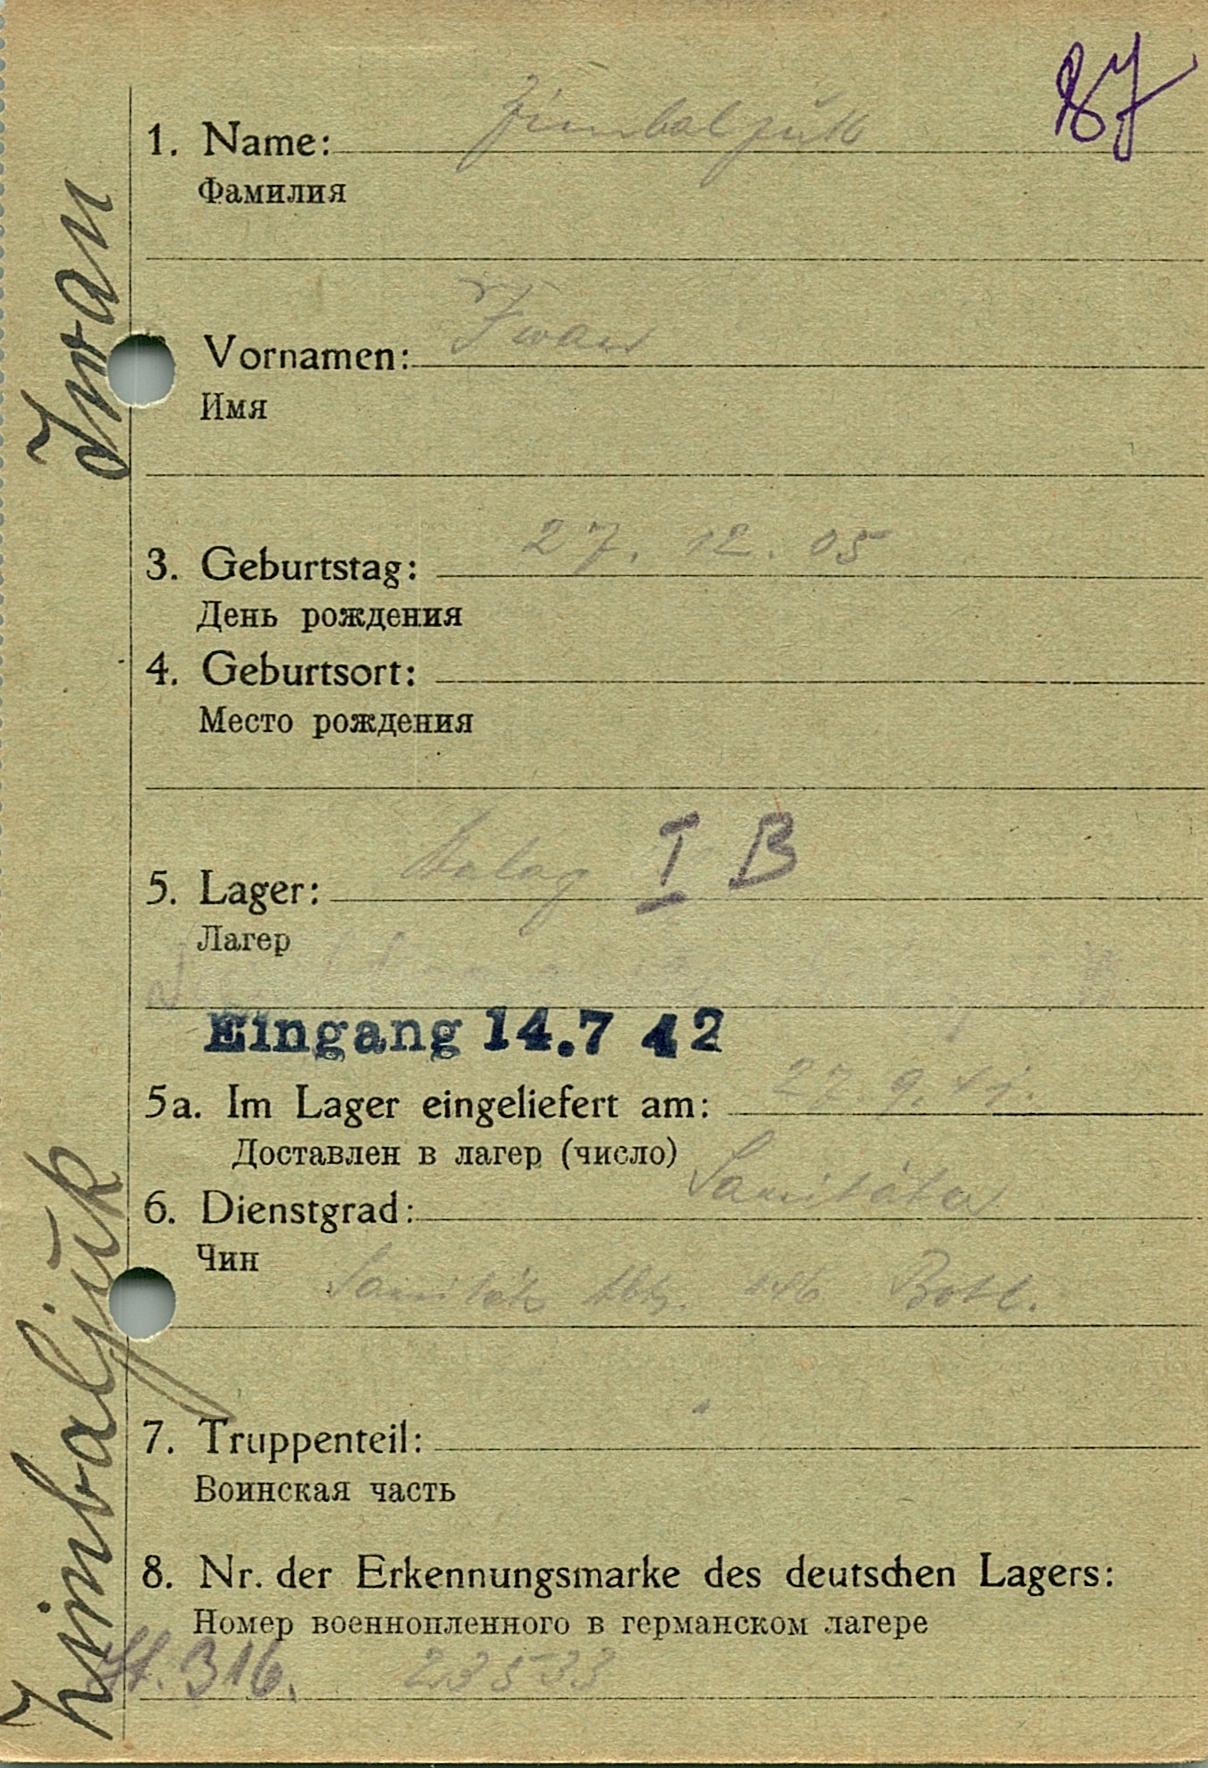 87
1. Name: Zimbaljuk
Фамилия
Vornamen: Iwan
Имя
3. Geburtstag: 27. 12. 05
День рождения
4. Geburtsort:
Место рождения
5. Lager: Stalag I B
Лагер
Eingang 14.7 42
5a. Im Lager eingeliefert am: 27. 9. 41.
Доставлен в лагер (число)
6. Dienstgrad: Sanitäter
Чин
Sanitäts Abt.
7. Truppenteil:
Воинская часть
8. Nr. der Erkennungsmarke des deutschen Lagers:
Номер военнопленного в германском лагере
St. 316. 23533
Zimbaljuk Iwan